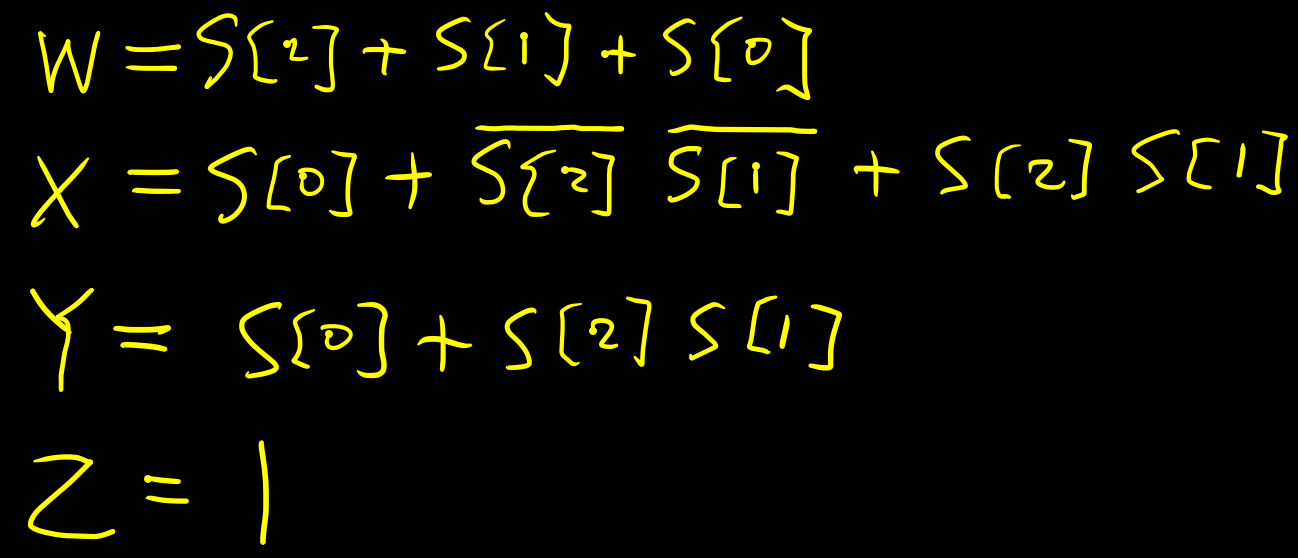 W = S[2] + S[1] + S[0]
X = S[0] + S̅[̅2̅]̅ S̅[̅1̅]̅ + S[2] S[1]
Y = S[0] + S[2] S[1]
Z = 1